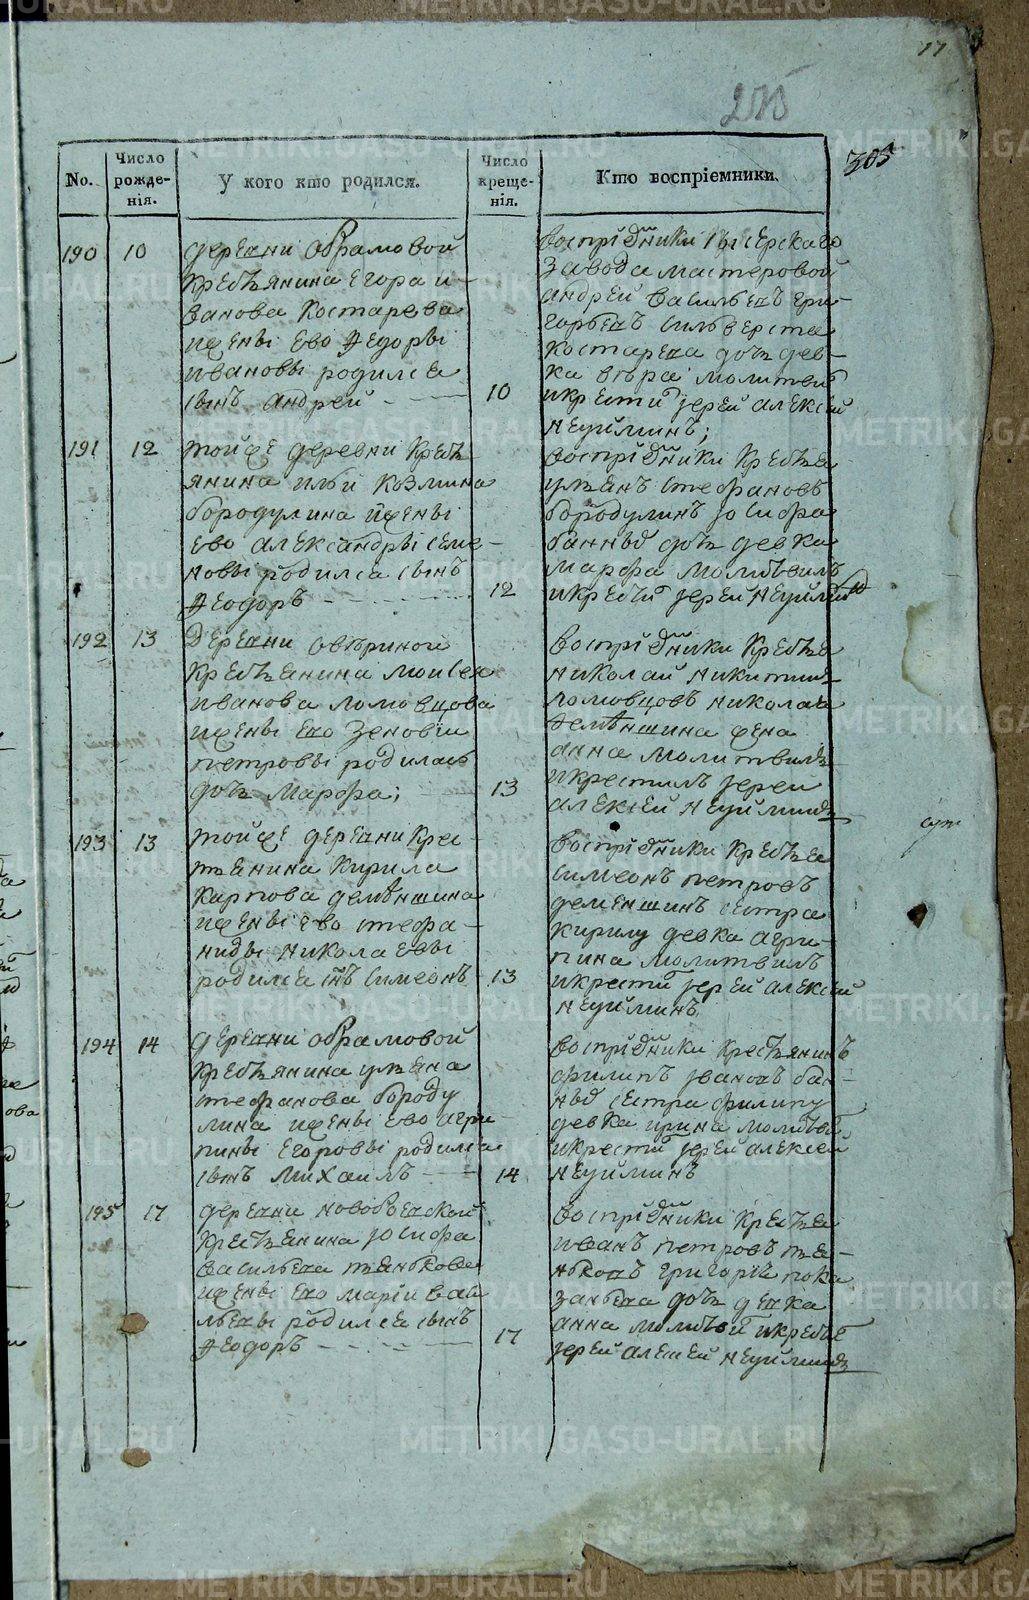 17
305
No.
Число рожде-нія.
У кого кто родился.
Число креще-нія.
Кто воспріемники.
190 10
деревни Абрамовой
крестьянина Егора и-
ванова Костарева
и жены ево Федоры
ивановы родился
сынъ андрей
10
воспріемники Сысерскаго
завода мастеровой
андрей васильевъ гри-
горьевъ сильверста
костарева дочь дев-
ка вѣра молитвилъ
и крестилъ іерей алексей
Неуйминъ;
191 12
той же деревни кресть-
янина ильи козмина
бородулина и жены
ево александры семе-
новы родился сынъ
Феодоръ
12
воспріемники
ульянъ стефановъ
бородулинъ іосифа
дочь девка
марфа молитвилъ
и крестилъ іерей Неуйминъ
192 13
деревни
крестьянина моисея
иванова ломовцова
и жены ево Зеновіи
петровы родилась
дочь Марфа;
13
воспріемники
николай никитинъ
ломовцовъ николая
деменьшина жена
анна молитвилъ
и крестилъ іерей
алексей Неуйминъ
193 13
той же деревни крес-
тьянина кирила
карпова деменьшина
и жены ево стефа-
ниды николаевы
родился сынъ Симеонъ
13
воспріемники
симеонъ петровъ
деменшинъ сестра
кирилу девка агри-
пина молитвилъ
и крестилъ іерей алексей
Неуйминъ
194 14
деревни Абрамовой
крестьянина ульяна
стефанова бороду
лина и жены ево агри-
пины Егоровы родился
сынъ Михаилъ
14
воспріемники крестьянинъ
филипъ ивановъ
сестра филипу
девка ирина молитвилъ
и крестилъ іерей алексей
Неуйминъ
195 17
деревни
крестьянина іосифа
васильева
и жены ево маріи васи
льевы родился сынъ
Феодоръ
17
воспріемники
иванъ петровъ пьян-
ковъ григорій
дочь девка
анна молитвилъ и крестилъ
іерей алексей Неуйминъ
METRIKI.GASO-URAL.RU